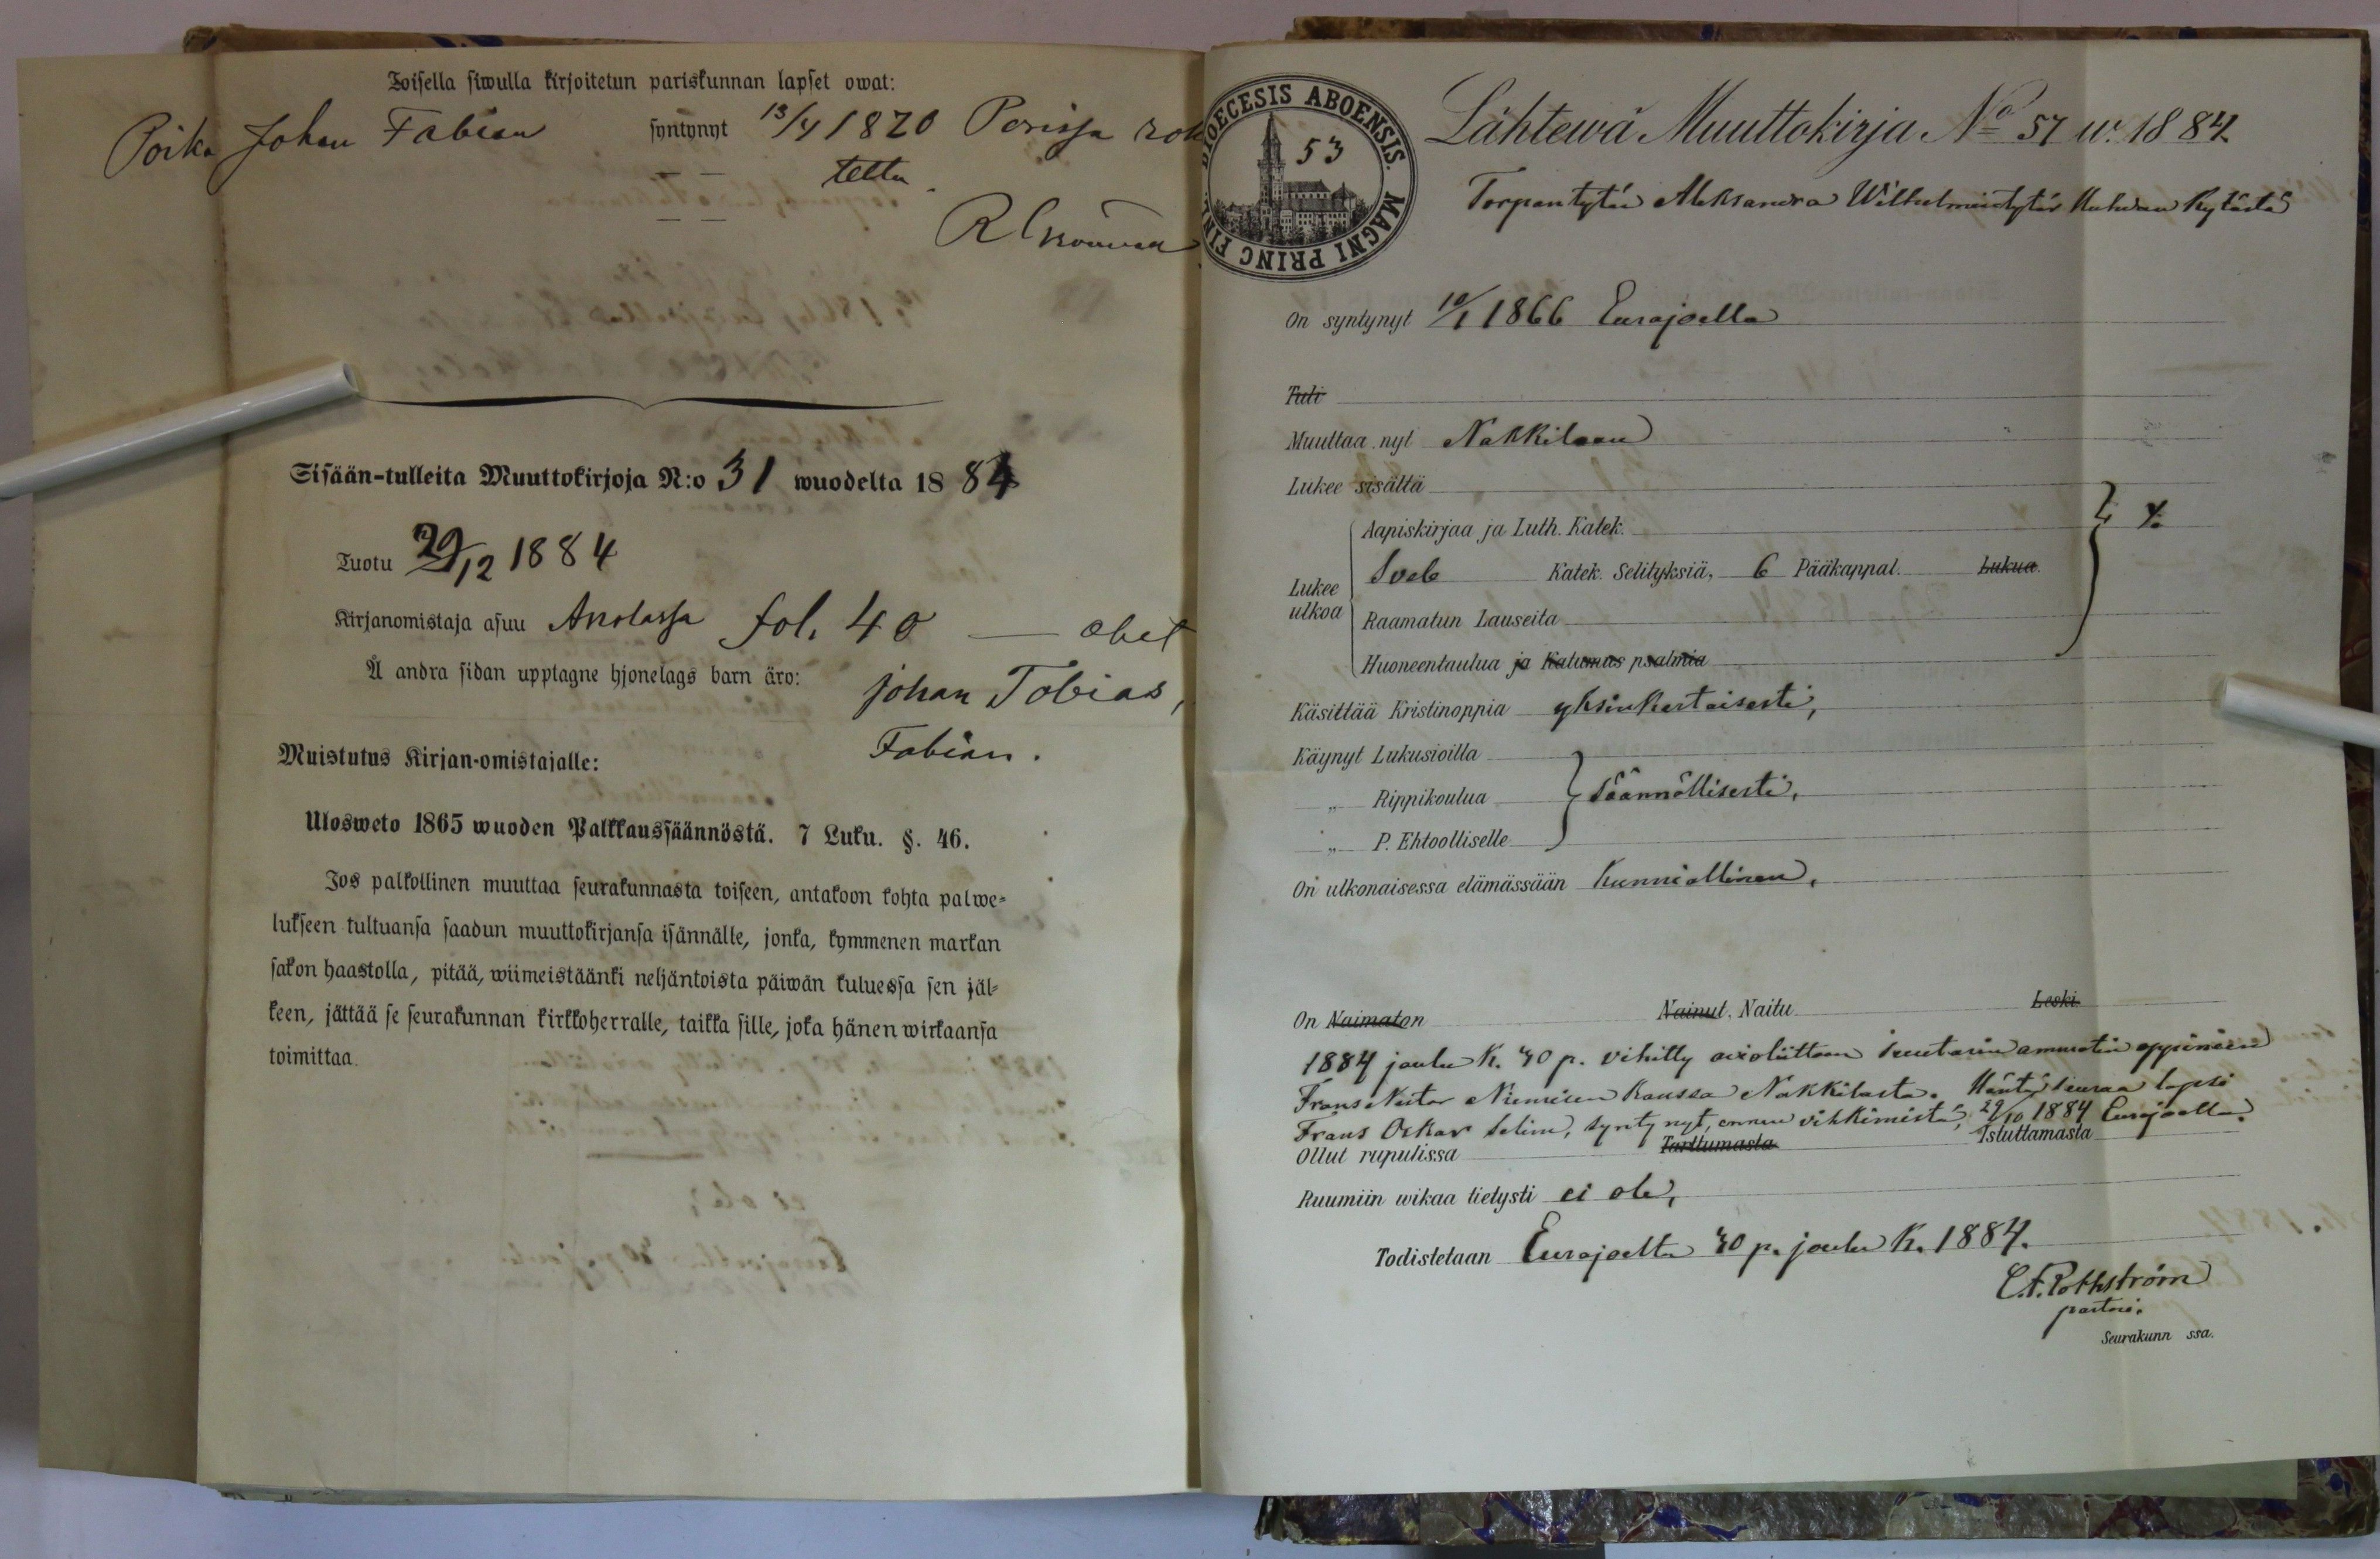 Toisella siwulla kirjoitetun pariskunnan lapset owat:
Poika Johan Fabian syntynyt 13/4 1820 Porissa rok
tettu.
Sisään-tulleita Muuttokirjoja N:o 31 wuodelta 1884
Tuotu 29/12 1884
Kirjanomistaja asuu Anolassa fol. 40 — obet
Å andra sidan upptagne hjonelags barn äro:
Johan Tobias,
Fabian.
Muistutus Kirjan-omistajalle:
Ulosweto 1865 wuoden Palkkaussäännöstä. 7 Luku. §. 46.
Jos palkollinen muuttaa seurakunnasta toiseen, antakoon kohta palwe-
lukseen tultuansa saadun muuttokirjansa isännälle, jonka, kymmenen markan
sakon haastolla, pitää, wiimeistäänki neljäntoista päiwän kuluessa sen jäl-
keen, jättää se seurakunnan kirkkoherralle, taikka sille, joka hänen wirkaansa
toimittaa.
DIOECESIS ABOENSIS. MAGNI PRINC FINL.
53
Lähtewä Muuttokirja No 57 w. 1884.
Torpantytär Aleksandra Wilhelmintytär
On syntynyt 10/1 1866 Eurajoella
Tuli
Muuttaa nyt Nakkilaan
Lukee sisältä
Aapiskirjaa ja Luth. Katek.
Lukee ulkoa
Sveb Katek. Selityksiä, 6 Pääkappal. Lukua.
Raamatun Lauseita
Huoneentaulua ja Katumus psalmia
Käsittää Kristinoppia yksinkertaisesti,
Käynyt Lukusioilla
„ Rippikoulua säännöllisesti,
„ P. Ehtoolliselle
On ulkonaisessa elämässään kunniallinen,
On Naimaton Nainut, Naitu Leski.
1884 joulu k. 30 p. vihitty avioliittoon suutarin ammatin oppineen
Frans Nestor Niemisen kanssa Nakkilasta. Häntä seuraa lapsi
Frans Oskar Selim, syntynyt, ennen vihkimistä, 29/10 1884 Eurajoella.
Ollut rupulissa Tarttumasta Istuttamasta
Ruumiin wikaa tietysti ei ole,
Todistetaan Eurajoelta 30 p. joulu k. 1884.
C.F. Rothström
pastori.
Seurakunn ssa.